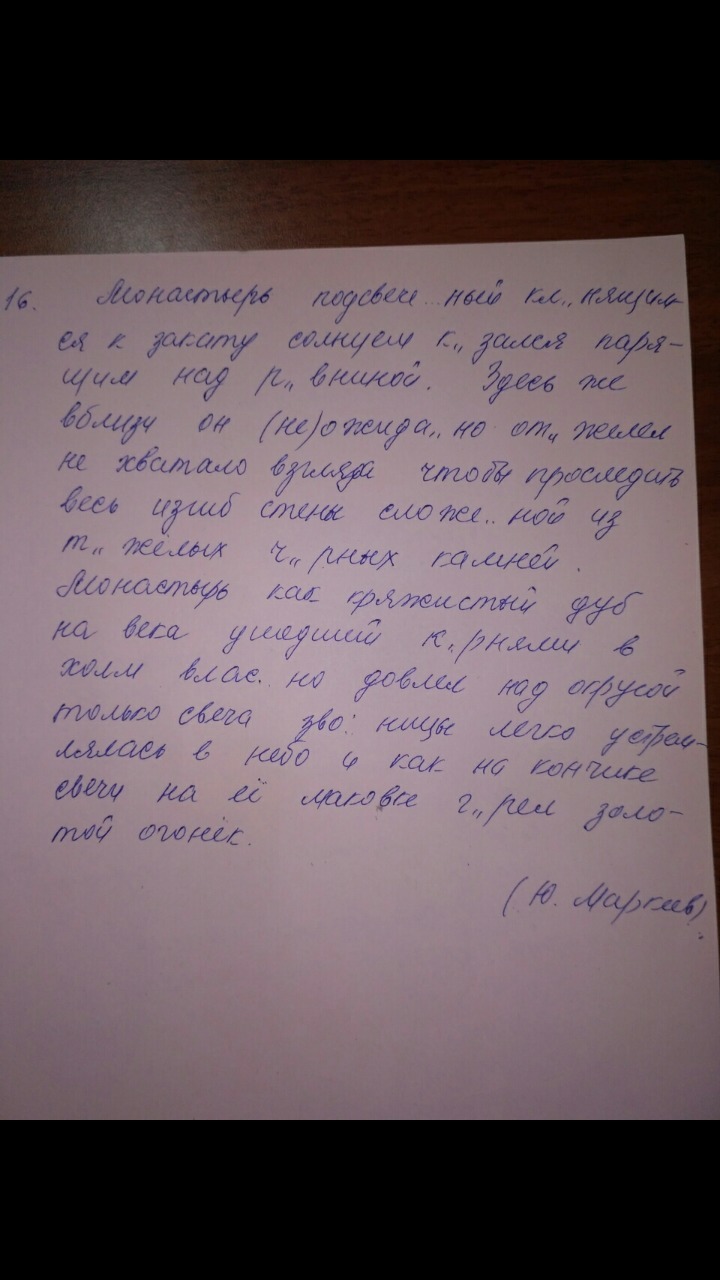 16. Монастырь подсвече..ный кл..нящим-
ся к закату солнцем к..зался паря-
щим над р..вниной. Здесь же
вблизи он (не)ожида..но от..желел
не хватало взгляда чтобы проследить
весь изгиб стены сложе..ной из
т..жёлых ч..рных камней.
Монастырь как кряжистый дуб
на века ушедший к..рнями в
холм влас..но довлел над округой
только свеча зво..ницы легко устрем-
лялась в небо и как на кончике
свечи на её маковке г..рел золо-
той огонёк.
(Ю. Маркеев)